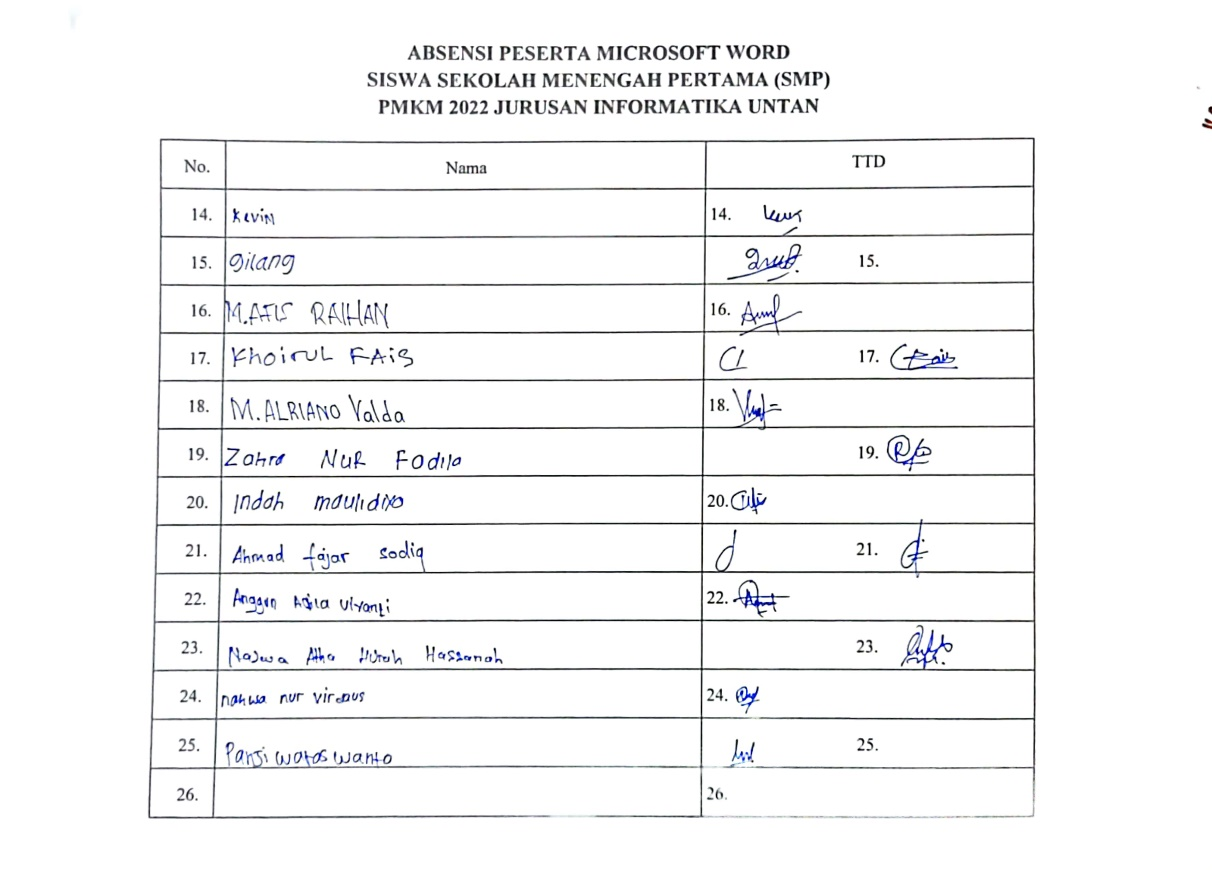 ABSENSI PESERTA MICROSOFT WORD
SISWA SEKOLAH MENENGAH PERTAMA (SMP)
PMKM 2022 JURUSAN INFORMATIKA UNTAN
No. Nama TTD
14. Kevin 14.
15. gilang 15.
16. M.AFIS RAIHAN 16.
17. Khoirul FAiS 17. Fais
18. M.ALRIANO Valda 18.
19. Zahra NUR Fadila 19.
20. Indah maulidya 20.
21. Ahmad fajar sodiq 21.
22. Anggun 22.
23. Najwa Hassanah 23.
24. nahwa nur 24.
25. Panji waraswanto 25.
26. 26.